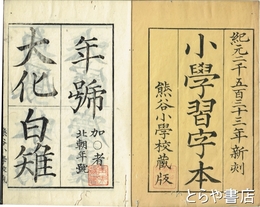 紀元二千五百三十三年新刻
小學習字本
熊谷小學校藏版
年號
加〇者
北朝年號
大化白雉
とらや書店